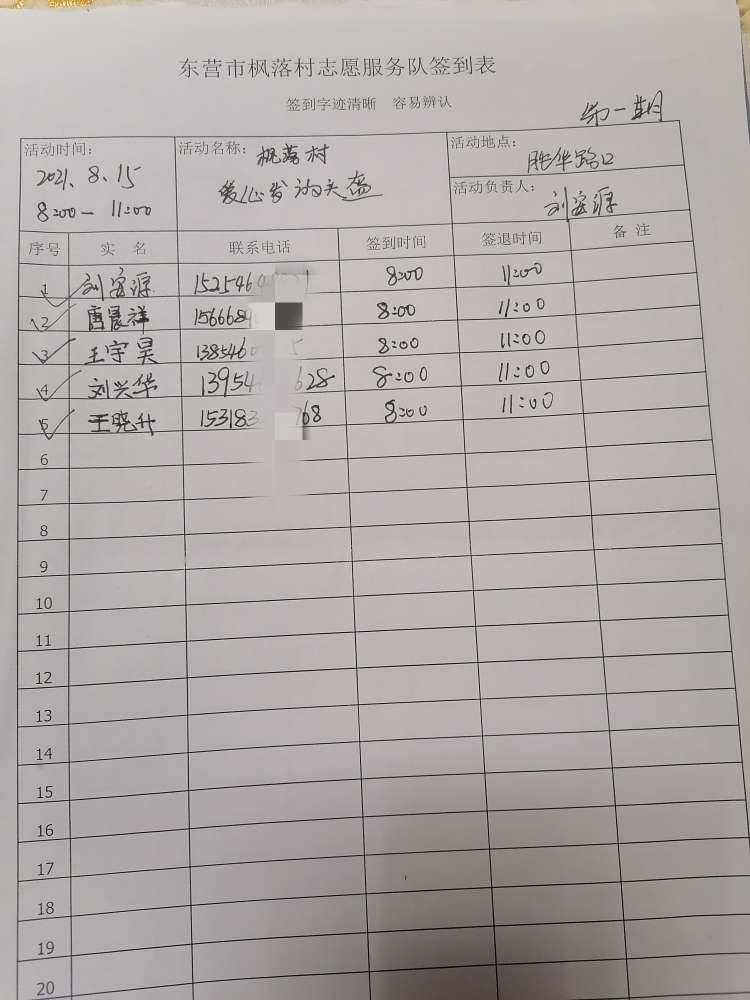 东营市枫落村志愿服务队签到表
签到字迹清晰 容易辨认
第一期
活动时间: 2021.8.15 8:00-11:00
活动名称: 枫落村 爱心发放头盔
活动地点: 胜华路口
活动负责人: 刘宝源
序号 实名 联系电话 签到时间 签退时间 备注
1 刘宝源 1525460 8:00 11:00
2 唐晨祥 1566684 8:00 11:00
3 王宇昊 1385460 5 8:00 11:00
4 刘兴华 13954 628 8:00 11:00
5 王晓升 15318 768 8:00 11:00
6
7
8
9
10
11
12
13
14
15
16
17
18
19
20